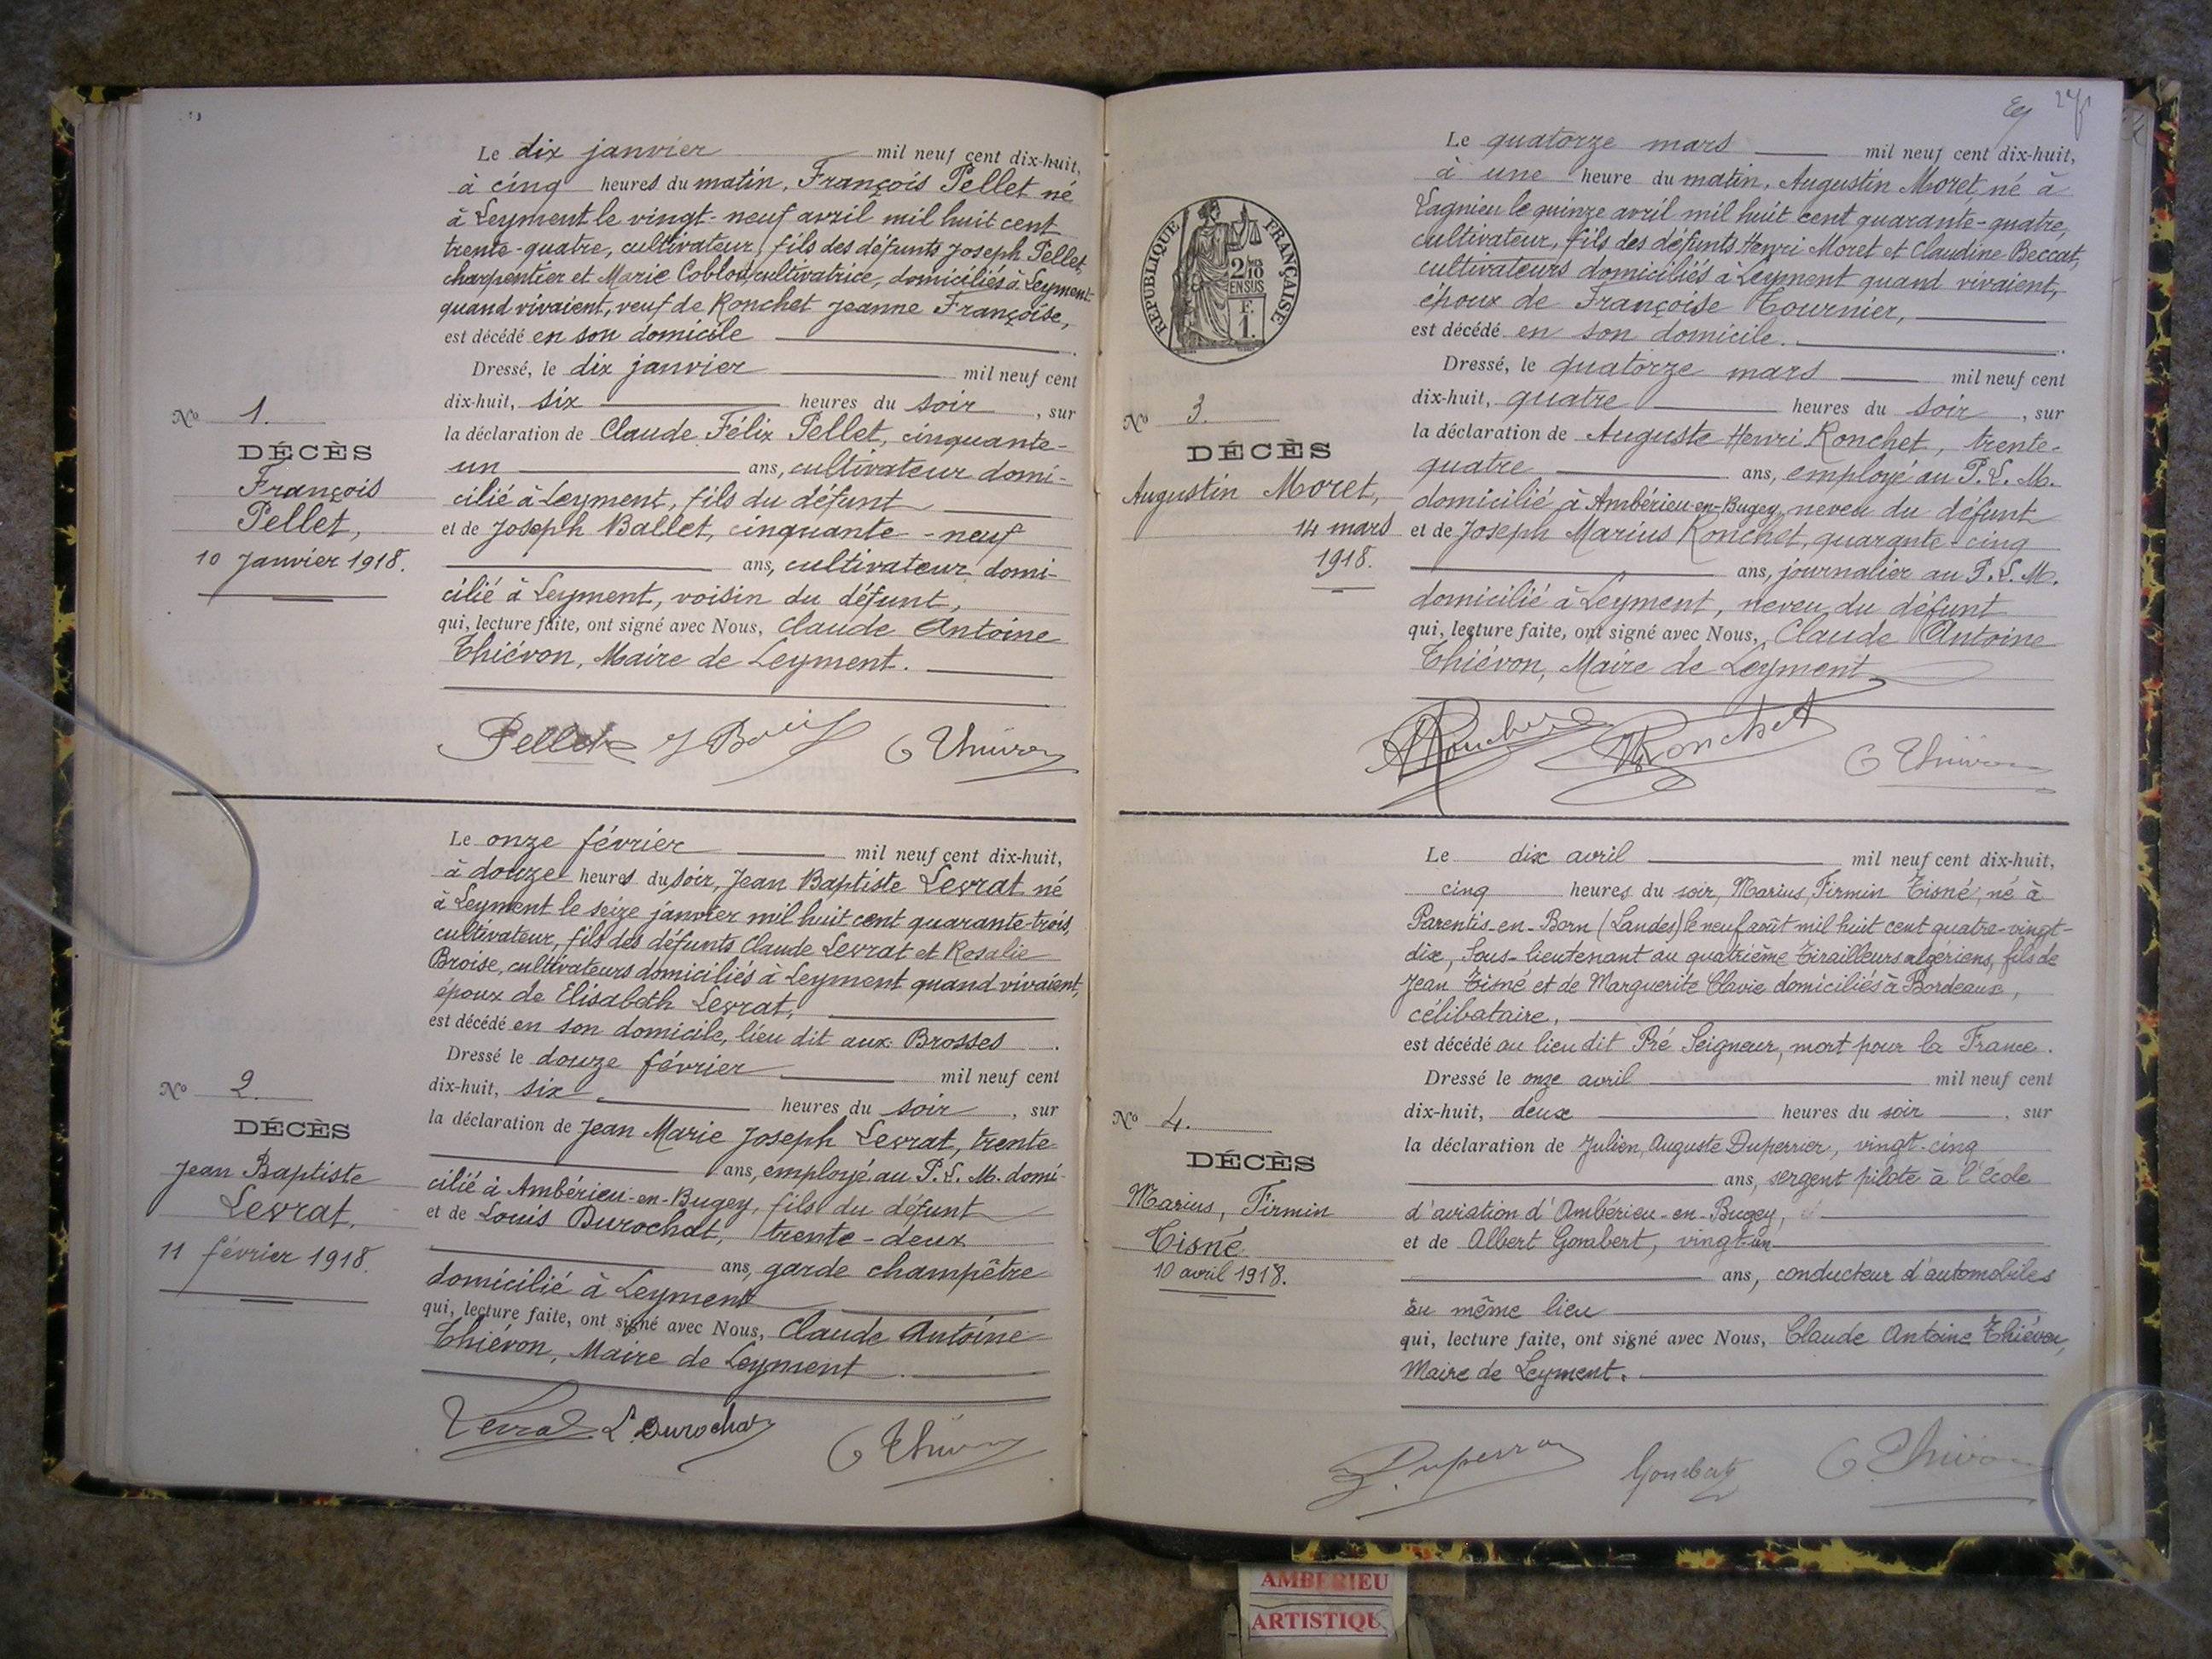 Le dix janvier mil neuf cent dix-huit,
à cinq heures du matin, François Pellet né
à Leyment le vingt-neuf avril mil huit cent
trente-quatre, cultivateur, fils des défunts Joseph Pellet,
charpentier et Marie cultivatrice, domiciliés à Leyment
quand vivaient, veuf de Ronchet Jeanne Françoise,
est décédé en son domicile
Dressé, le dix janvier mil neuf cent
dix-huit, six heures du soir, sur
la déclaration de Claude Félix Pellet, cinquante-
un ans, cultivateur domi-
cilié à Leyment, fils du défunt
et de Joseph Ballet, cinquante-neuf
ans, cultivateur domi-
cilié à Leyment, voisin du défunt,
qui, lecture faite, ont signé avec Nous, Claude Antoine
Thiévon, Maire de Leyment.
Nº 1.
DÉCÈS
François
Pellet,
10 Janvier 1918.
Pellet
C Thiévon
Le onze février mil neuf cent dix-huit,
à douze heures du soir, Jean Baptiste Levrat né
à Leyment le seize janvier mil huit cent quarante-trois,
cultivateur, fils des défunts Claude Levrat et Rosalie
Broise, cultivateurs domiciliés à Leyment quand vivaient,
époux de Elisabeth Levrat,
est décédé en son domicile, lieu dit aux Brosses.
Dressé le douze février mil neuf cent
dix-huit, six heures du soir, sur
la déclaration de Jean Marie Joseph Levrat, trente
ans, employé au P. L. M. domi-
cilié à Ambérieu-en-Bugey, fils du défunt
et de Louis Durochat, trente-deux
ans, garde champêtre
domicilié à Leyment
qui, lecture faite, ont signé avec Nous, Claude Antoine
Thiévon, Maire de Leyment
Nº 2.
DÉCÈS
Jean Baptiste
Levrat,
11 février 1918.
Levrat L. Durochat
C Thiévon
RÉPUBLIQUE FRANÇAISE
2/10
EN SUS
F.
1.
Le quatorze mars mil neuf cent dix-huit,
à une heure du matin, Augustin Moret, né à
Lagnieu le quinze avril mil huit cent quarante-quatre,
cultivateur, fils des défunts Henri Moret et Claudine Beccat,
cultivateurs domiciliés à Leyment quand vivaient,
époux de Françoise Tournier,
est décédé en son domicile.
Dressé, le quatorze mars mil neuf cent
dix-huit, quatre heures du soir, sur
la déclaration de Auguste Henri Ronchet, trente-
quatre ans, employé au P. L. M.
domicilié à Ambérieu-en-Bugey, neveu du défunt
et de Joseph Marius Ronchet, quarante-cinq
ans, journalier au P. L. M.
domicilié à Leyment, neveu du défunt
qui, lecture faite, ont signé avec Nous, Claude Antoine
Thiévon, Maire de Leyment
Nº 3.
DÉCÈS
Augustin Moret,
14 mars
1918.
Ronchet
Ronchet
C Thiévon
Le dix avril mil neuf cent dix-huit,
cinq heures du soir, Marius, Firmin Tisné, né à
Parentis-en-Born (Landes) le neuf août mil huit cent quatre-vingt-
dix, Sous-lieutenant au quatrième Tirailleurs algériens, fils de
Jean Tisné et de Marguerite Clavie domiciliés à Bordeaux,
célibataire,
est décédé au lieu dit Pré Seigneur, mort pour la France.
Dressé le onze avril mil neuf cent
dix-huit, deux heures du soir, sur
la déclaration de Julien, Auguste Duperrier, vingt-cinq
ans, sergent pilote à l'école
d'aviation d'Ambérieu-en-Bugey,
et de Albert Gombert, vingt-un
ans, conducteur d'automobiles
au même lieu
qui, lecture faite, ont signé avec Nous, Claude Antoine Thiévon,
Maire de Leyment.
Nº 4.
DÉCÈS
Marius, Firmin
Tisné
10 avril 1918.
C. Thiévon
AMBERIEU
ARTISTIQU